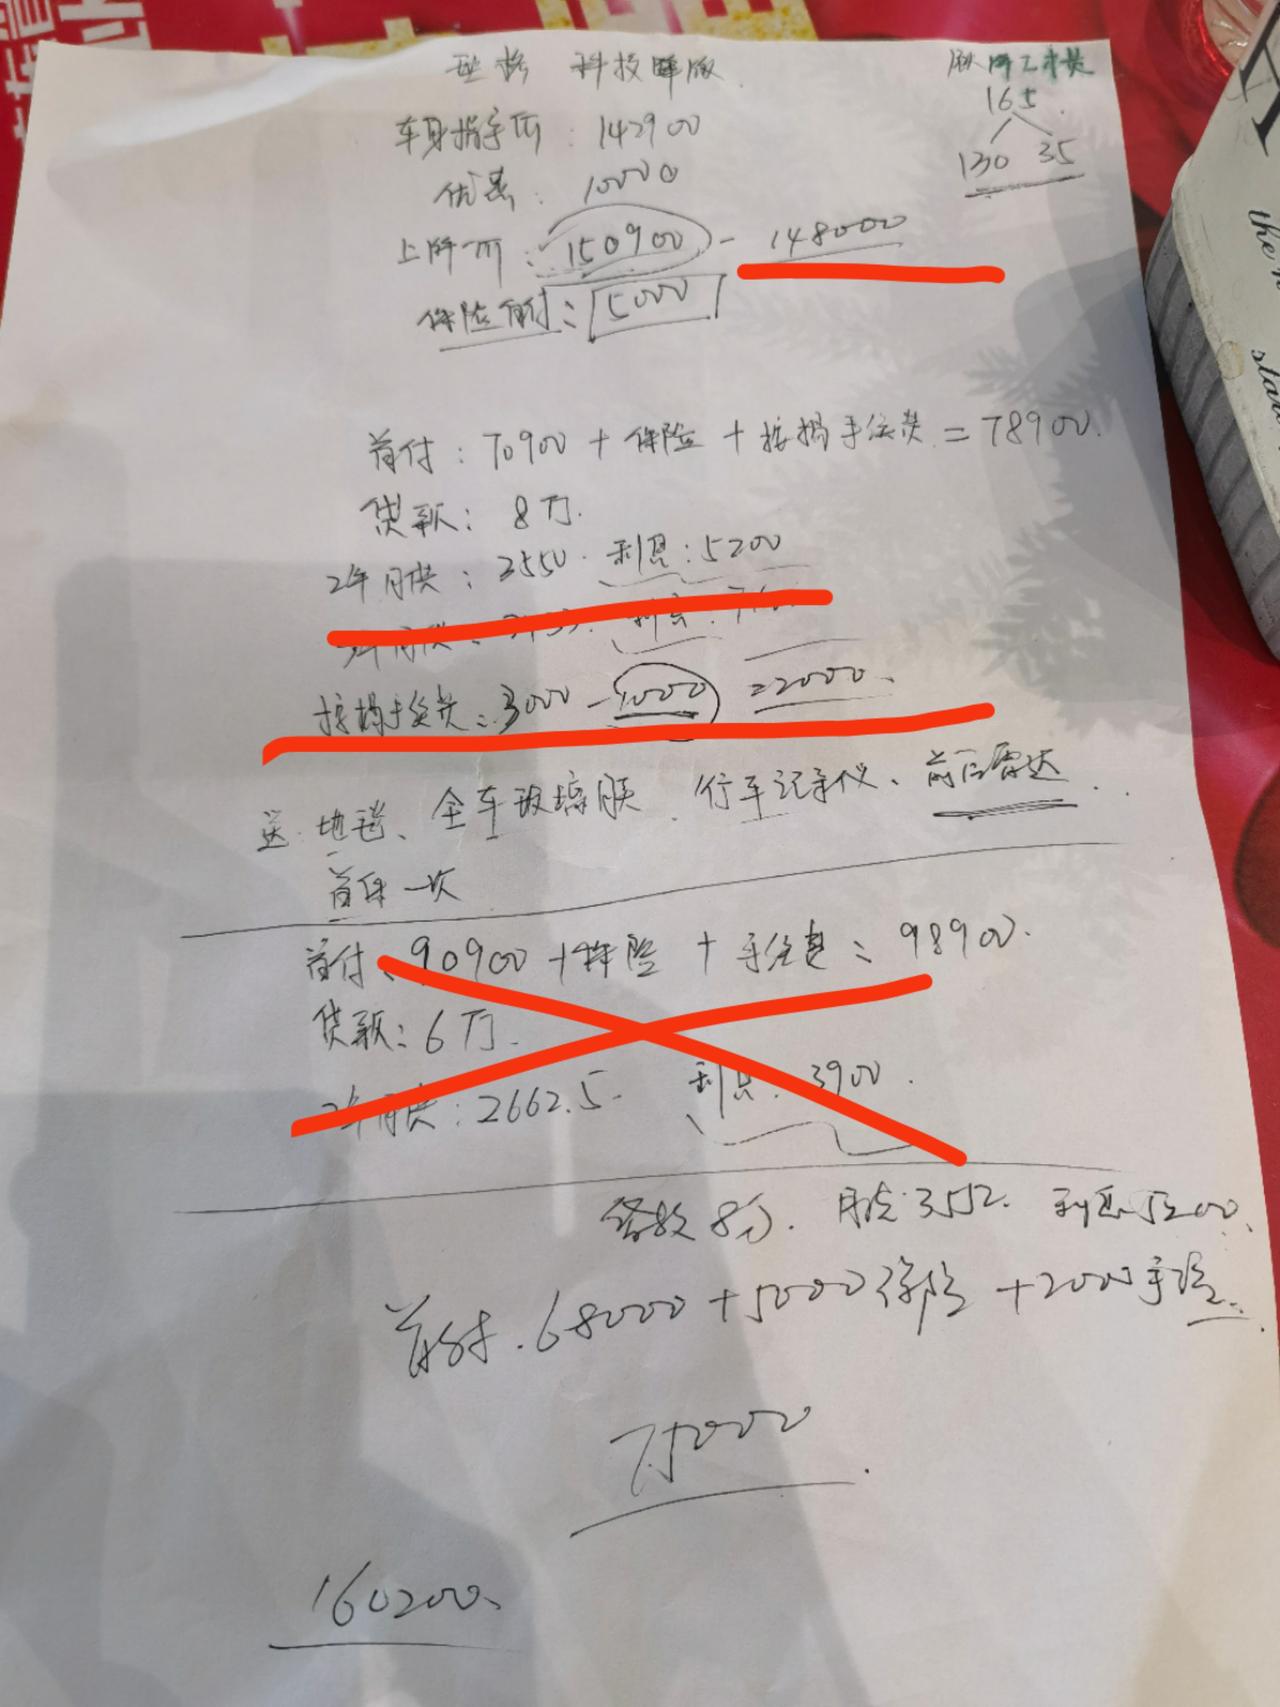 型格 科技睿版
165
130 35
车身指导价：142900
优惠：10000
上牌价：150900 - 148000
保险自付：5000
首付：70900 + 保险 + 按揭手续费 = 78900.
贷款：8万.
2年月供：3550. 利息：5200
按揭手续费：3000 - 1000 = 2000.
送：地毯、全车玻璃膜、行车记录仪、前后雷达..
首保一次
首付：90900 + 保险 + 手续费 = 98900.
贷款：6万.
2年月供：2662.5. 利息：3900.
贷款8万. 月供：3552. 利息5200.
首付.68000+5000保险+2000手续..
75000.
160200.
the
star